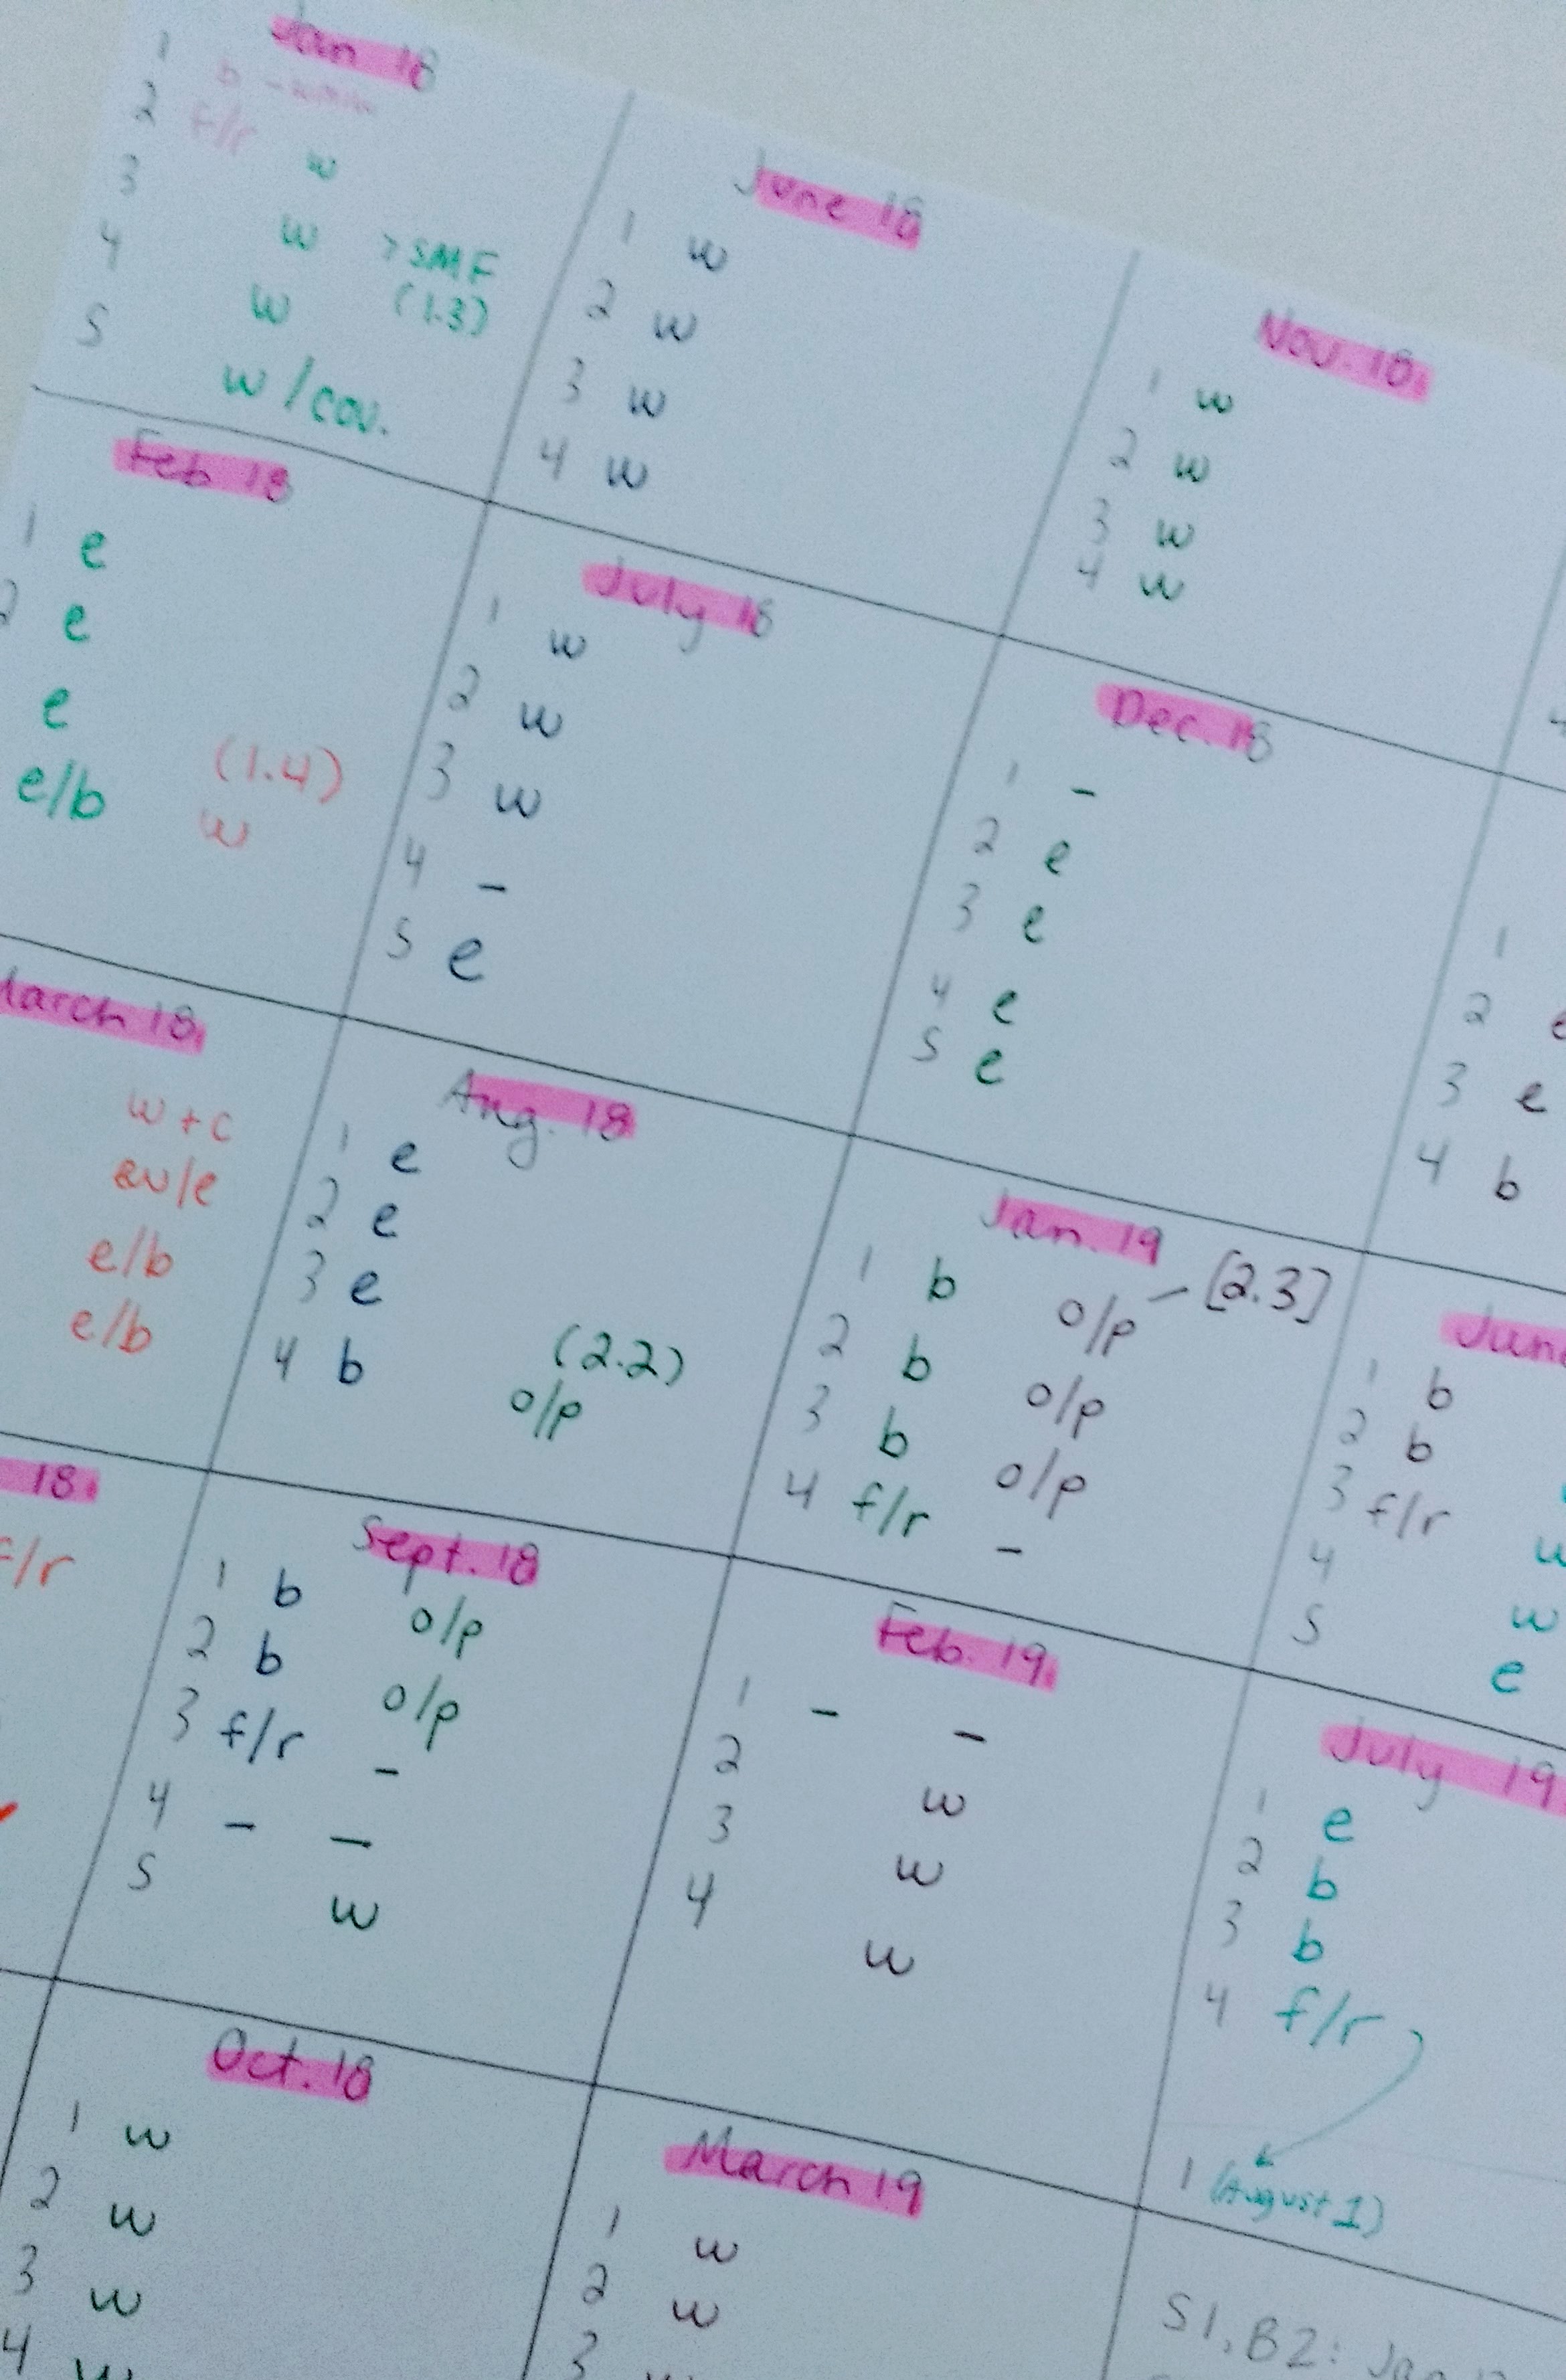 Jan 18
1 b -
2 f/r w
3 w >SMF
4 w (1.3)
5 w/cov.
Feb 18
1 e
2 e
e
e/b (1.4)
w
March 18.
w+c
e/b
e/b
18.
f/r
June 18
1 w
2 w
3 w
4 w
July 18
1 w
2 w
3 w
4 -
5 e
Aug. 18
1 e
2 e
3 e
4 b (2.2)
o/p
Sept. 18
1 b o/p
2 b o/p
3 f/r -
4 - -
5 w
Oct. 18
1 w
2 w
3 w
4 w
Nov. 18.
1 w
2 w
3 w
4 w
Dec. 18
1 -
2 e
3 e
4 e
5 e
Jan. 19
1 b o/p - [2.3]
2 b o/p
3 b o/p
4 f/r -
Feb. 19.
1 - -
2 w
3 w
4 w
March 19
1 w
2 w
3
4
1
2 e
3 e
4 b
June
1 b
2 b
3 f/r
4 w
5 w
e
July 19
1 e
2 b
3 b
4 f/r
1 (August 1)
S1, B2: Jan